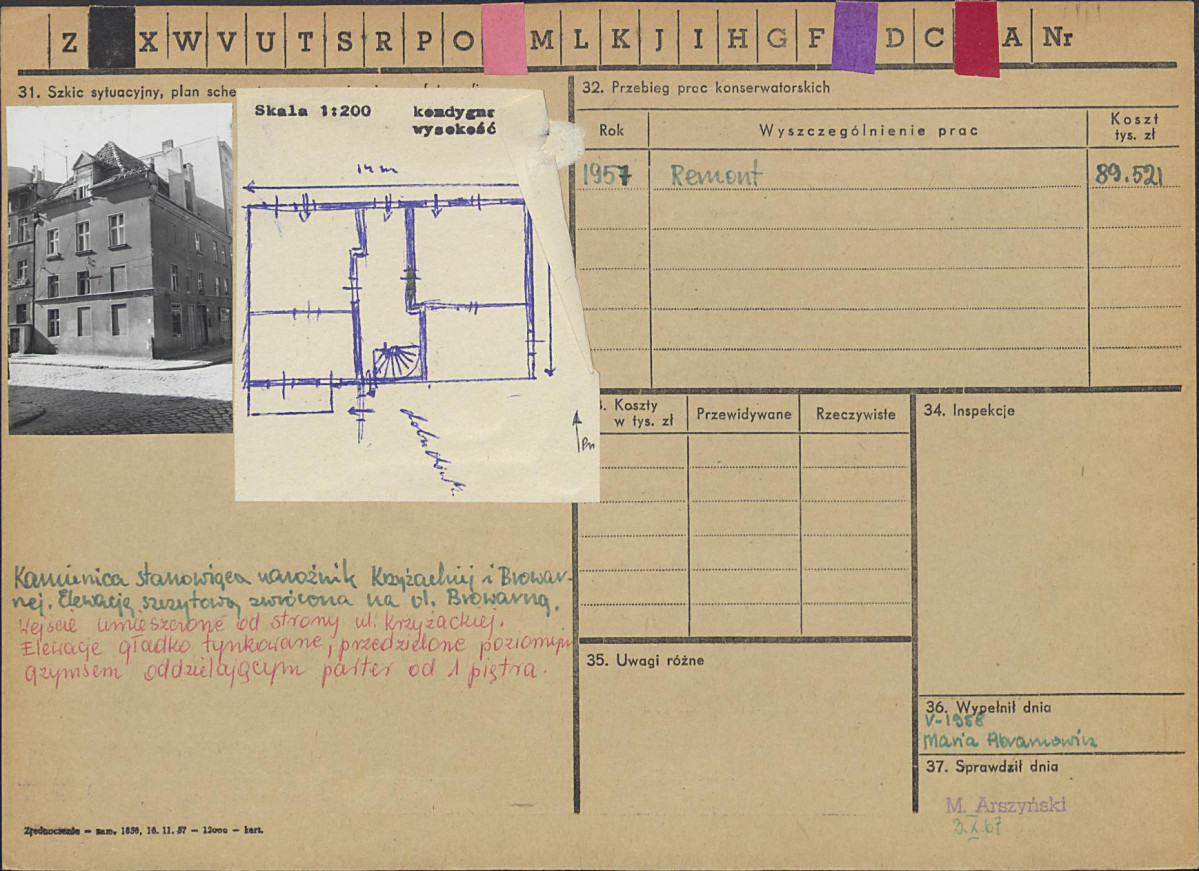 Z X W V U T S R P O M L K J I H G F D C A Nr
31. Szkic sytuacyjny, plan sche
32. Przebieg prac konserwatorskich
Skala 1:200 kondygnr
wysokość
14 m
Pn
Rok Wyszczególnienie prac Koszt
tys. zł
1957 Remont 89.521
Koszty
w tys. zł Przewidywane Rzeczywiste
34. Inspekcje
Kamienica stanowiąca narożnik Krzyżackiej i Browar-
nej. Elewacją szczytową zwrócona na ul. Browarną,
Wejście umieszczone od strony ul. Krzyżackiej.
Elewacje gładko tynkowane, przedzielone poziomym
gzymsem oddzielającym parter od 1 piętra.
35. Uwagi różne
36. Wypełnił dnia
V-1958
Maria Abramowicz
37. Sprawdził dnia
M. Arszyński
3.X.67
Zjednoczenie – zam. 1656, 16. 11. 57 – 12000 – kart.